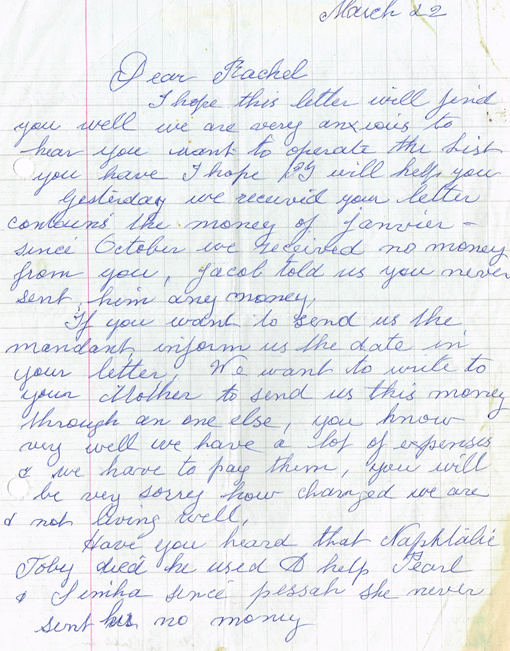 March 22
Dear Rachel
I hope this letter will find
you well we are very anxious to
hear you want to operate the sist
you have I hope will help you
Yesterday we received your letter
contains the money of janvier -
since October we received no money
from you, Jacob told us you never
sent him any money,
If you want to send us the
mandant, inform us the date in
your letter, We want to write to
your Mother to send us this money
through an one else, you know
very well we have a lot of expenses
& we have to pay them, you will
be very sorry how changed we are
& not living well,
Have you heard that Naphtalie
Toby died he used to help Pearl
& Simha since pessah she never
sent no money